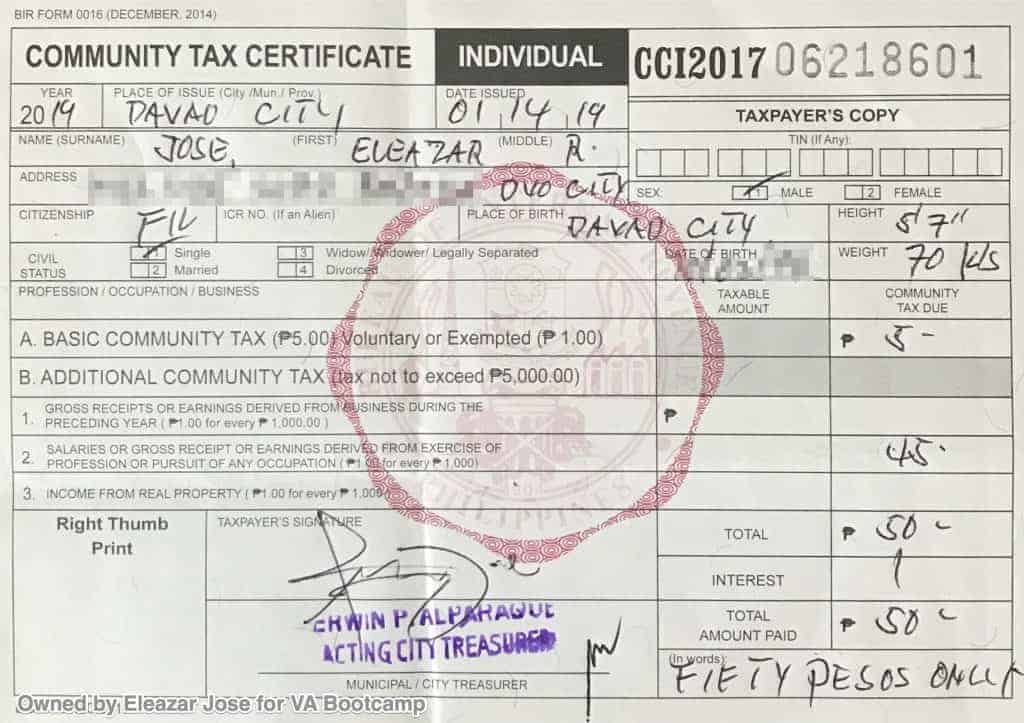 BIR FORM 0016 (DECEMBER, 2014)
COMMUNITY TAX CERTIFICATE INDIVIDUAL CCI2017 06218601
YEAR PLACE OF ISSUE (City /Mun./ Prov.) DATE ISSUED
2019 DAVAO CITY 01 14 19
TAXPAYER'S COPY
NAME (SURNAME) (FIRST) (MIDDLE) TIN (If Any):
JOSE, ELEAZAR R.
ADDRESS DVO CITY SEX: 1 MALE 2 FEMALE
CITIZENSHIP ICR NO. (If an Alien) PLACE OF BIRTH HEIGHT
FIL DAVAO CITY 5'7"
CIVIL STATUS 1 Single 3 Widow/ Widower/ Legally Separated DATE OF BIRTH WEIGHT 70
2 Married 4 Divorced
PROFESSION / OCCUPATION / BUSINESS TAXABLE AMOUNT COMMUNITY TAX DUE
A. BASIC COMMUNITY TAX (₱5.00) Voluntary or Exempted (₱ 1.00) ₱ 5-
B. ADDITIONAL COMMUNITY TAX (tax not to exceed ₱5,000.00)
1. GROSS RECEIPTS OR EARNINGS DERIVED FROM BUSINESS DURING THE ₱
PRECEDING YEAR ( ₱1.00 for every ₱ 1,000.00 )
2. SALARIES OR GROSS RECEIPT OR EARNINGS DERIVED FROM EXERCISE OF 45.
PROFESSION OR PURSUIT OF ANY OCCUPATION ( ₱1.00 for every ₱ 1,000)
3. INCOME FROM REAL PROPERTY ( ₱1.00 for every ₱ 1,000)
PHILIPPINES
Right Thumb
Print
TAXPAYER'S SIGNATURE
TOTAL ₱ 50-
INTEREST
TOTAL AMOUNT PAID ₱ 50-
ERWIN P. ALPARAQUE
ACTING CITY TREASURER
MUNICIPAL / CITY TREASURER
(In words):
FIFTY PESOS ONLY
Owned by Eleazar Jose for VA Bootcamp